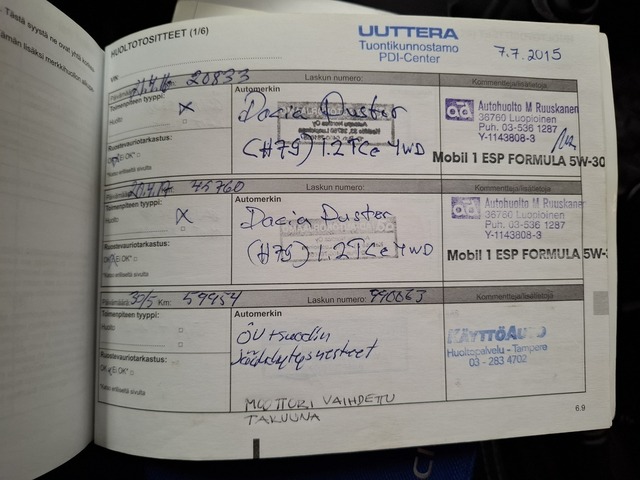 Tästä syystä ne ovat yhtä
HUOLTOTOSITTEET (1/6)
UUTTERA
Tuontikunnostamo
PDI-Center
7.7.2015
20833
Laskun numero:
Kommentteja/lisätietoja
Toimenpiteen tyyppi:
Huolto
X
Ruostevauriotarkastus:
OK Ei OK*
*Katso erillisellä sivulta
Automerkin
Dacia Duster
(H79) 1.2 TCe 4WD
ad Autohuolto M Ruuskanen
36760 Luopioinen
Puh. 03-536 1287
Y-1143808-3
Mobil 1 ESP FORMULA 5W-30
20.4.17 45760
Laskun numero:
Kommentteja/lisätietoja
Toimenpiteen tyyppi:
Huolto
X
Ruostevauriotarkastus:
OK Ei OK*
*Katso erillisellä sivulta
Automerkin
Dacia Duster
(H79) 1.2 TCe 4WD
ad Autohuolto M Ruuskanen
36760 Luopioinen
Puh. 03-536 1287
Y-1143808-3
Mobil 1 ESP FORMULA 5W-3
Päivämäärä 30/5 Km: 59954
Laskun numero: 990063
Kommentteja/lisätietoja
Toimenpiteen tyyppi:
Huolto
Ruostevauriotarkastus:
OK Ei OK*
*Katso erillisellä sivulta
Automerkin
Öljynsuodin
Jäähdytysnesteet
MOOTTORI VAIHDETTU
TAKUUNA
KÄYTTÖAUTO
Huoltopalvelu - Tampere
03 - 283 4702
6.9